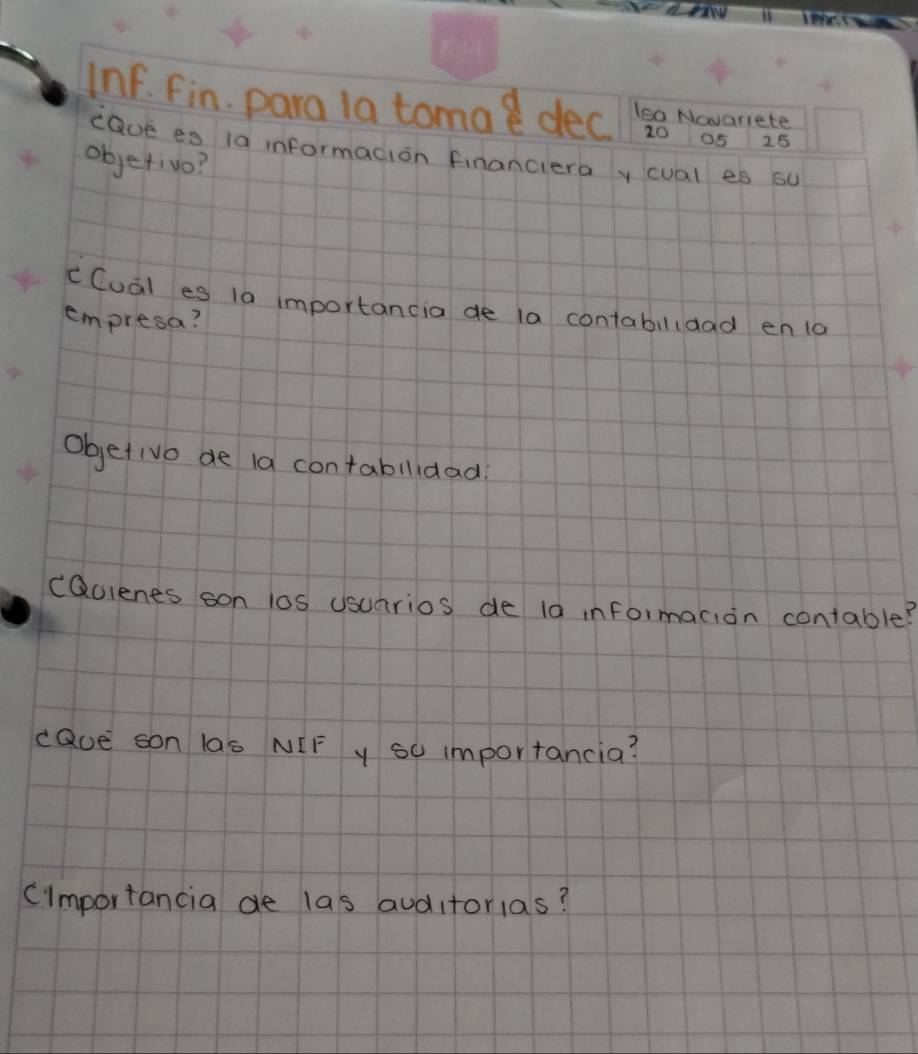 Inf. Fin. para la toma d dec.
Isa Navarrete
20 05 25
¿Qué es la información financiera y cual es su
objetivo?
¿Cuál es la importancia de la contabilidad en la
empresa?
Objetivo de la contabilidad:
¿Quienes son los usuarios de la información contable?
¿Qué son las NIF y su importancia?
¿Importancia de las auditorias?